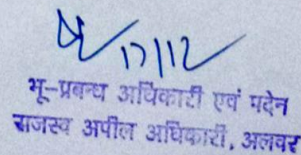 17/12
भू-प्रबन्ध अधिकारी एवं पदेन
राजस्व अपील अधिकारी, अलवर